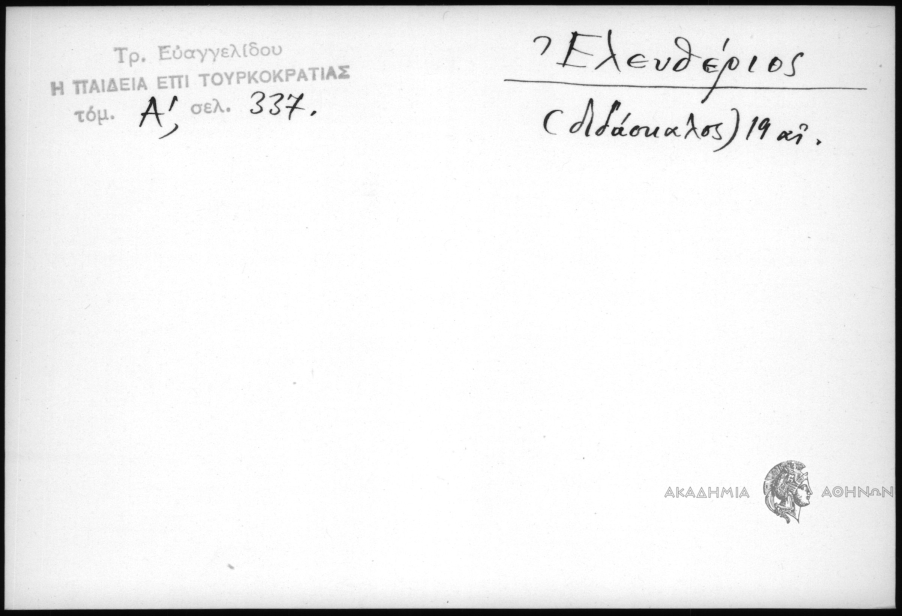 Τρ. Εὐαγγελίδου
Η ΠΑΙΔΕΙΑ ΕΠΙ ΤΟΥΡΚΟΚΡΑΤΙΑΣ
τόμ. Α', σελ. 337.
Ἐλευθέριος
(διδάσκαλος) 19 αἰ.
ΑΚΑΔΗΜΙΑ ΑΘΗΝΩΝ